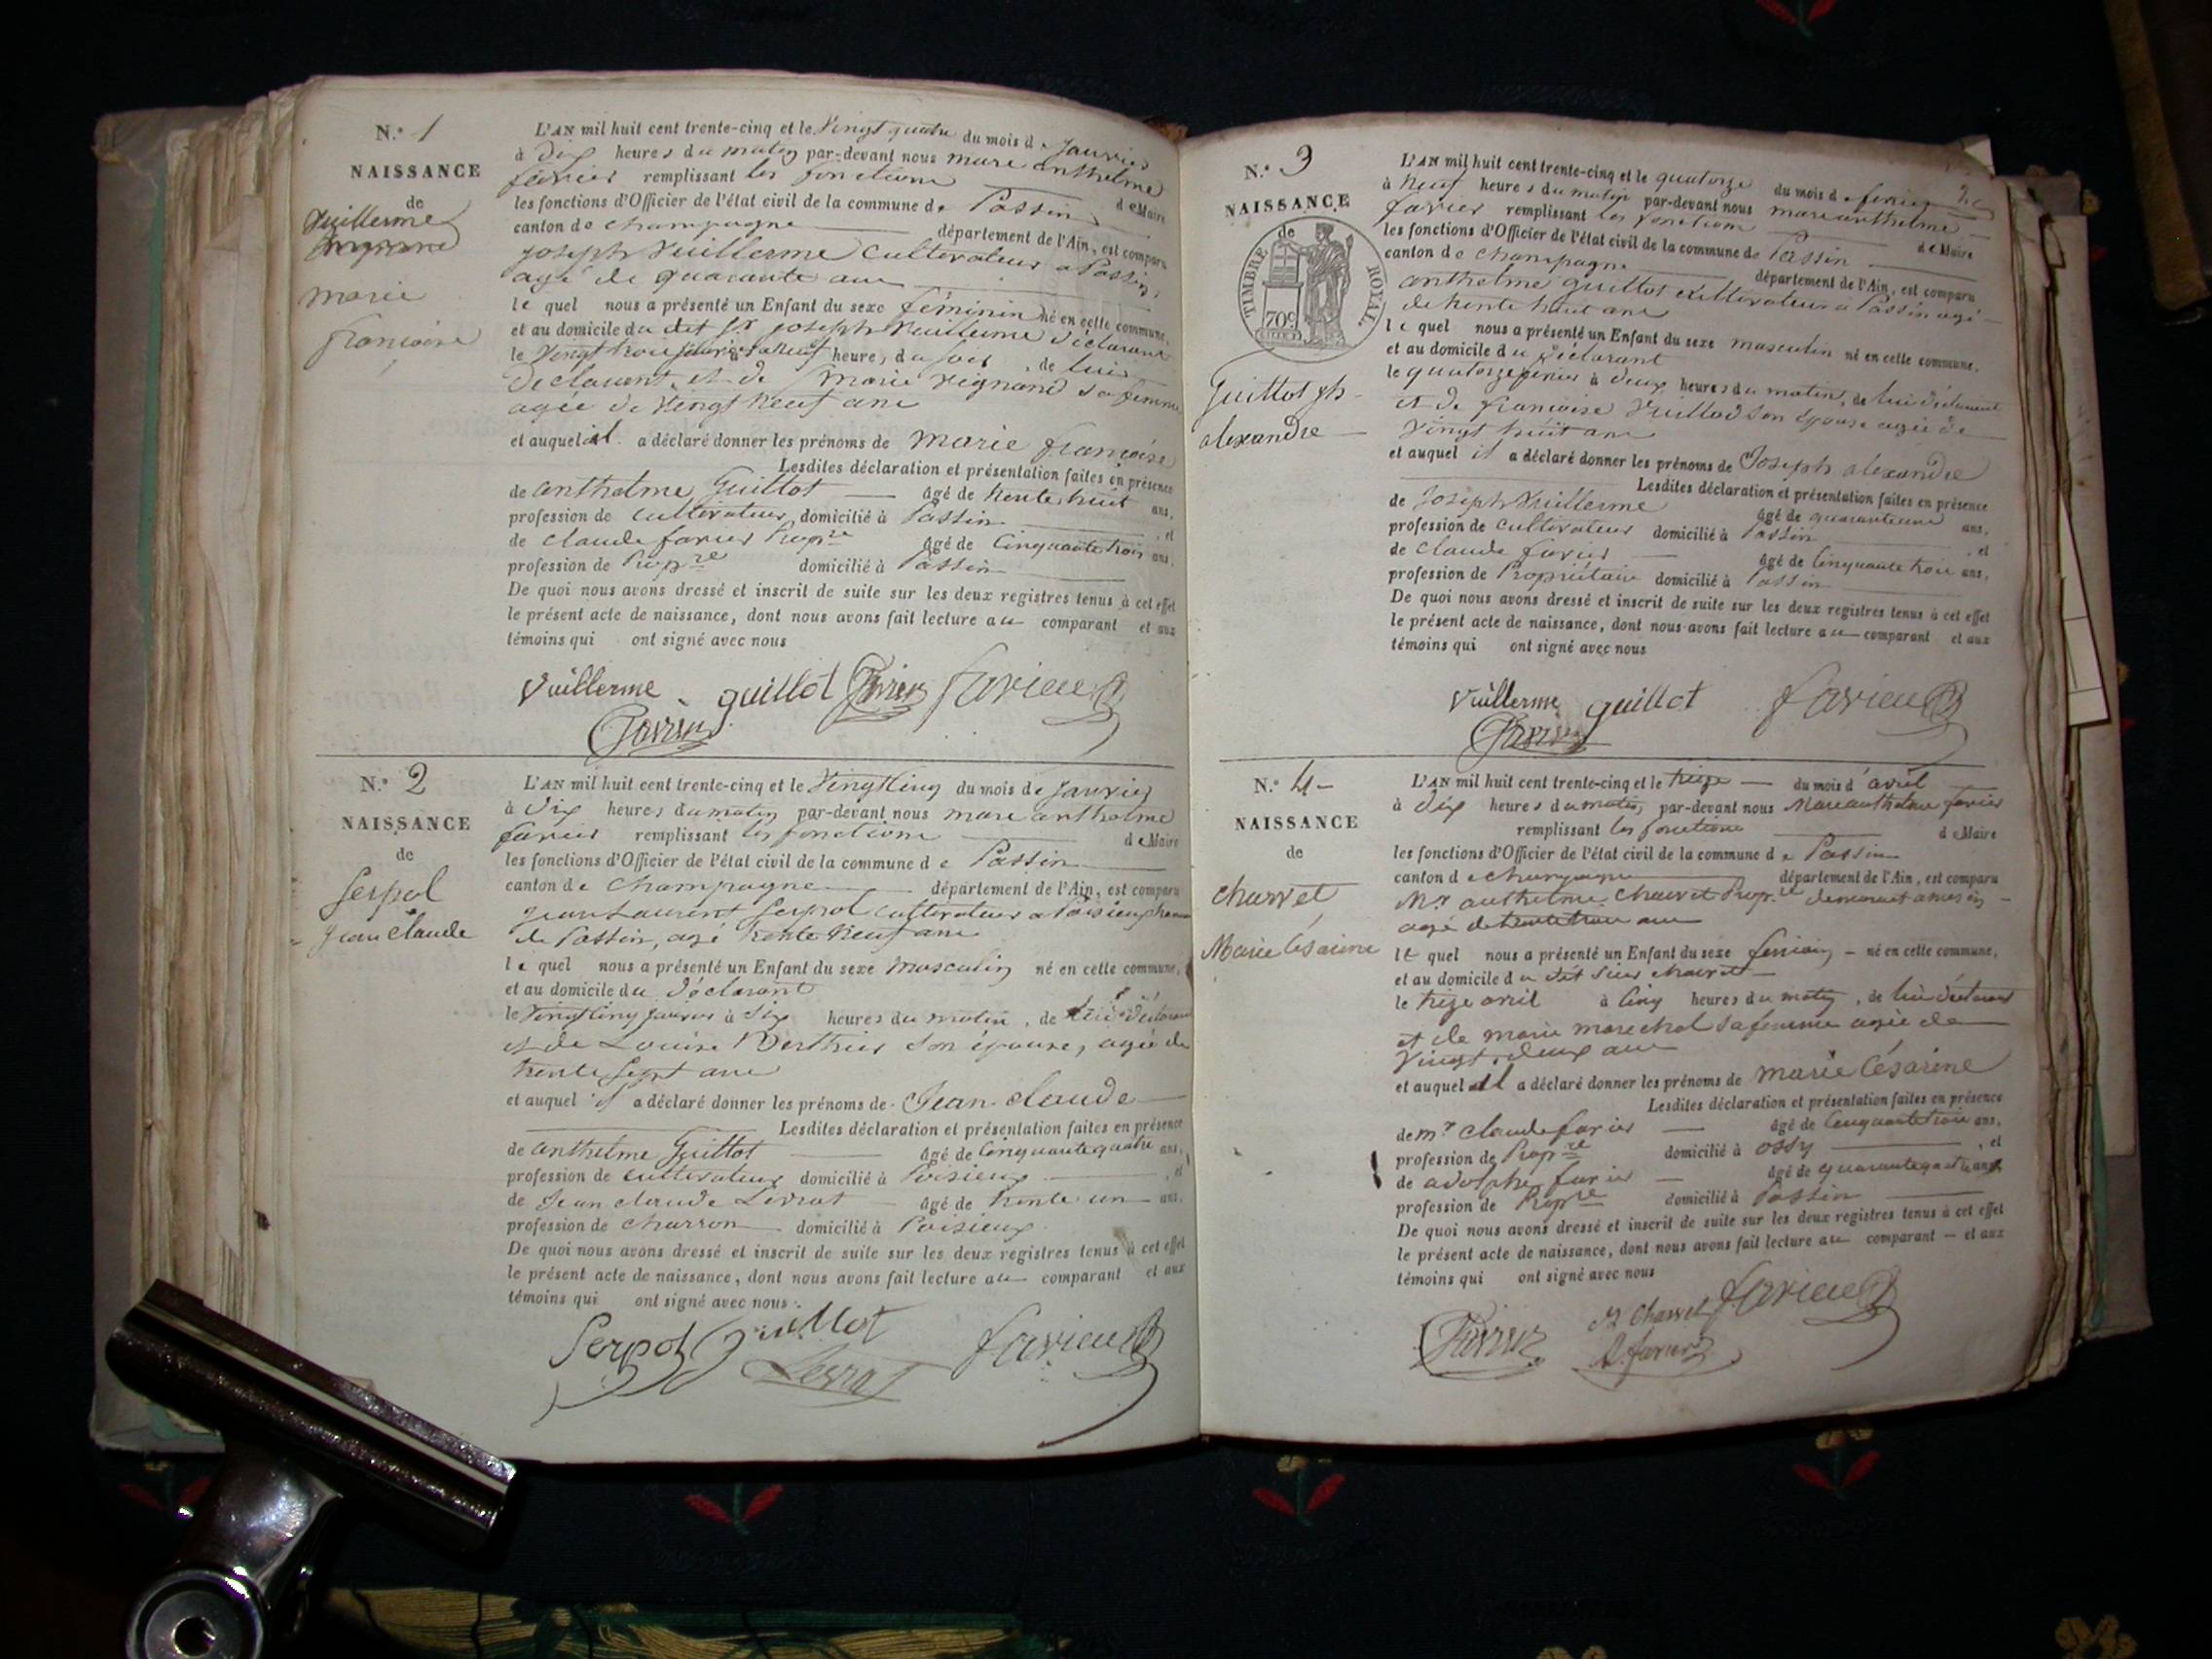 N.° 1
NAISSANCE
de
Vuillerme
marie
françoise
L'AN mil huit cent trente-cinq et le Vingt quatre du mois de Janvier
à dix heures du matin par-devant nous marc anthelme
favier remplissant les fonctions de Maire
les fonctions d'Officier de l'état civil de la commune de Passin
canton de champagne département de l'Ain, est comparu
joseph Vuillerme cultivateur a Passin,
agé de quarante ans
le quel nous a présenté un Enfant du sexe féminin né en cette commune,
et au domicile du dit Sr joseph Vuillerme déclarant
le Vingt trois janvier a neuf heures du soir, de lui
déclarant, et de marie vignand sa femme
agée de Vingt neuf ans
et auquel il a déclaré donner les prénoms de marie françoise
Lesdites déclaration et présentation faites en présence
de anthelme Guillot âgé de trente huit ans,
profession de cultivateur domicilié à Passin, et
de claude favier Propre âgé de Cinquante trois ans,
profession de Propre domicilié à Passin
De quoi nous avons dressé et inscrit de suite sur les deux registres tenus à cet effet
le présent acte de naissance, dont nous avons fait lecture au comparant et aux
témoins qui ont signé avec nous
Vuillerme guillot favier
N.° 2
NAISSANCE
de
Serpol
jean claude
L'AN mil huit cent trente-cinq et le Vingt cinq du mois de janvier
à dix heures du matin par-devant nous marc anthelme
favier remplissant les fonctions de Maire
les fonctions d'Officier de l'état civil de la commune de Passin
canton de champagne département de l'Ain, est comparu
jean Laurent Serpol cultivateur a Poisieu
de Passin, agé trente neuf ans
le quel nous a présenté un Enfant du sexe masculin né en cette commune,
et au domicile du déclarant
le Vingt cinq janvier à six heures du matin, de lui déclarant
et de Louise Berthier son épouse, agée de
trente sept ans
et auquel il a déclaré donner les prénoms de Jean claude
Lesdites déclaration et présentation faites en présence
de anthelme Guillot âgé de Cinquante quatre ans,
profession de cultivateur domicilié à Poisieux, et
de Jean claude Levrat âgé de trente un ans,
profession de charron domicilié à Poisieux
De quoi nous avons dressé et inscrit de suite sur les deux registres tenus à cet effet
le présent acte de naissance, dont nous avons fait lecture au comparant et aux
témoins qui ont signé avec nous.
Serpol guillot favier
Levrat
N.° 3
NAISSANCE
de
TIMBRE ROYAL
70c
Guillot jh
alexandre
L'AN mil huit cent trente-cinq et le quatorze du mois de fevrier
à neuf heures du matin par-devant nous marc anthelme
favier remplissant les fonctions de Maire
les fonctions d'Officier de l'état civil de la commune de Passin
canton de champagne département de l'Ain, est comparu
anthelme guillot cultivateur a Passin agé
de trente huit ans
le quel nous a présenté un Enfant du sexe masculin né en cette commune,
et au domicile du déclarant
le quatorze fevrier à deux heures du matin, de lui déclarant
et de françoise Vuillod son épouse agée de
Vingt huit ans
et auquel il a déclaré donner les prénoms de Joseph alexandre
Lesdites déclaration et présentation faites en présence
de Joseph Vuillerme âgé de quarante un ans,
profession de cultivateur domicilié à Passin, et
de claude favier âgé de Cinquante trois ans,
profession de Propriétaire domicilié à Passin
De quoi nous avons dressé et inscrit de suite sur les deux registres tenus à cet effet
le présent acte de naissance, dont nous avons fait lecture au comparant et aux
témoins qui ont signé avec nous
Vuillerme guillot favier
N.° 4
NAISSANCE
de
charvet
Marie Césarine
L'AN mil huit cent trente-cinq et le treize du mois d'avril
à dix heures du matin, par-devant nous Marc anthelme favier
remplissant les fonctions de Maire
les fonctions d'Officier de l'état civil de la commune de Passin
canton de champagne département de l'Ain, est comparu
Mr anthelme charvet Propre demeurant
agé de trente trois ans
le quel nous a présenté un Enfant du sexe feminin né en cette commune,
et au domicile du dit sieur charvet
le treize avril à cinq heures du matin, de lui déclarant
et de marie marechal sa femme agée de
Vingt deux ans
et auquel il a déclaré donner les prénoms de marie Césarine
Lesdites déclaration et présentation faites en présence
de mr claude favier âgé de Cinquante trois ans,
profession de Propre domicilié à ossy, et
de adolphe favier âgé de quarante quatre ans,
profession de Propre domicilié à Passin
De quoi nous avons dressé et inscrit de suite sur les deux registres tenus à cet effet
le présent acte de naissance, dont nous avons fait lecture au comparant et aux
témoins qui ont signé avec nous
Charvet favier
A. favier